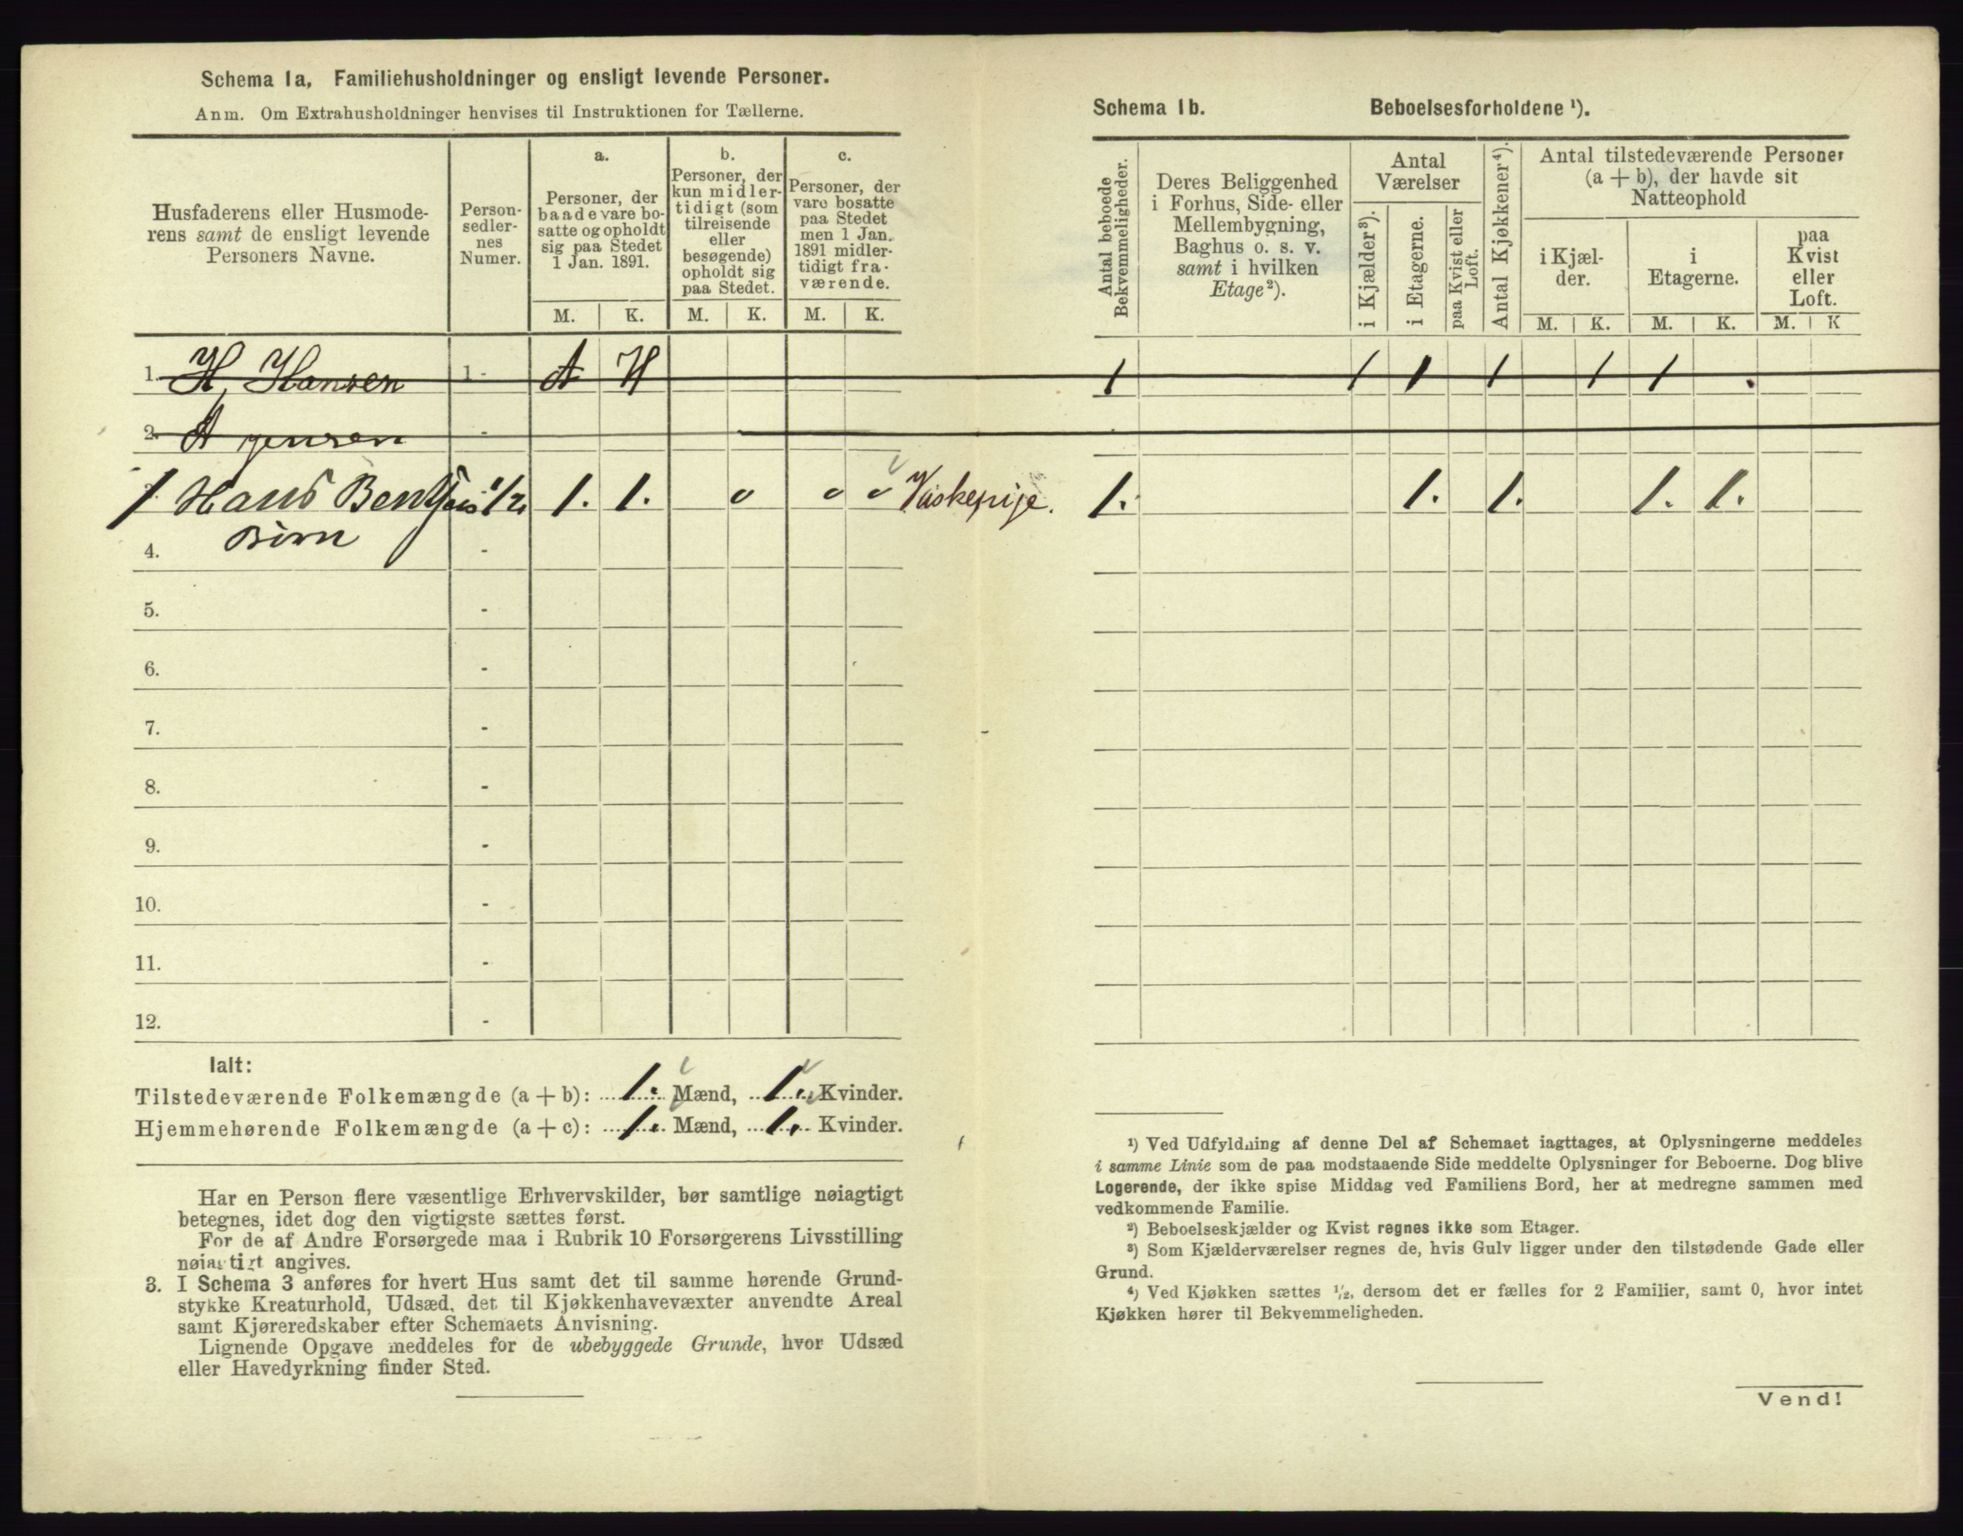 Schema 1a, Familiehusholdninger og ensligt levende Personer.
Anm. Om Extrahusholdninger henvises til Instruktionen for Tællerne.
Husfaderens eller Husmode-
rens samt de ensligt levende
Personers Navne.
Person-
sedler-
nes
Numer.
a.
Personer, der
baade vare bo-
satte og opholdt
sig paa Stedet
1 Jan. 1891.
b.
Personer, der
kun midler-
tidigt (som
tilreisende
eller
besøgende)
opholdt sig
paa Stedet.
c.
Personer, der
vare bosatte
paa Stedet
men 1 Jan.
1891 midler-
tidigt fra-
værende.
M. K. M. K. M. K.
1. H. Hansen 1 - A H
2. A Jensen -
1 Hans 1/2. 1. 1. 0 0 0 Vaskepige.
Børn
4. -
5. -
6. -
7. -
8. -
9. -
10. -
11. -
12. -
Ialt:
Tilstedeværende Folkemængde (a + b): 1. Mænd, 1. Kvinder.
Hjemmehørende Folkemængde (a + c): 1. Mænd, 1. Kvinder.
Har en Person flere væsentlige Erhvervskilder, bør samtlige nøiagtigt
betegnes, idet dog den vigtigste sættes først.
For de af Andre Forsørgede maa i Rubrik 10 Forsørgerens Livsstilling
nøiagtigt angives.
3. I Schema 3 anføres for hvert Hus samt det til samme hørende Grund-
stykke Kreaturhold, Udsæd, det til Kjøkkenhavevæxter anvendte Areal
samt Kjøreredskaber efter Schemaets Anvisning.
Lignende Opgave meddeles for de ubebyggede Grunde, hvor Udsæd
eller Havedyrkning finder Sted.
Schema 1b. Beboelsesforholdene ¹).
Antal beboede
Bekvemmeligheder.
Deres Beliggenhed
i Forhus, Side- eller
Mellembygning,
Baghus o. s. v.
samt i hvilken
Etage²).
Antal
Værelser
i Kjælder³).
i Etagerne.
paa Kvist eller
Loft.
Antal Kjøkkener⁴).
Antal tilstedeværende Personer
(a + b), der havde sit
Natteophold
i Kjæl-
der.
i
Etagerne.
paa
Kvist
eller
Loft.
M. K. M. K. M. K
1 1 1 1 1 1
1. 1. 1. 1. 1.
¹) Ved Udfyldning af denne Del af Schemaet iagttages, at Oplysningerne meddeles
i samme Linie som de paa modstaaende Side meddelte Oplysninger for Beboerne. Dog blive
Logerende, der ikke spise Middag ved Familiens Bord, her at medregne sammen med
vedkommende Familie.
²) Beboelseskjælder og Kvist regnes ikke som Etager.
³) Som Kjælderværelser regnes de, hvis Gulv ligger under den tilstødende Gade eller
Grund.
⁴) Ved Kjøkken sættes ½, dersom det er fælles for 2 Familier, samt 0, hvor intet
Kjøkken hører til Bekvemmeligheden.
Vend!